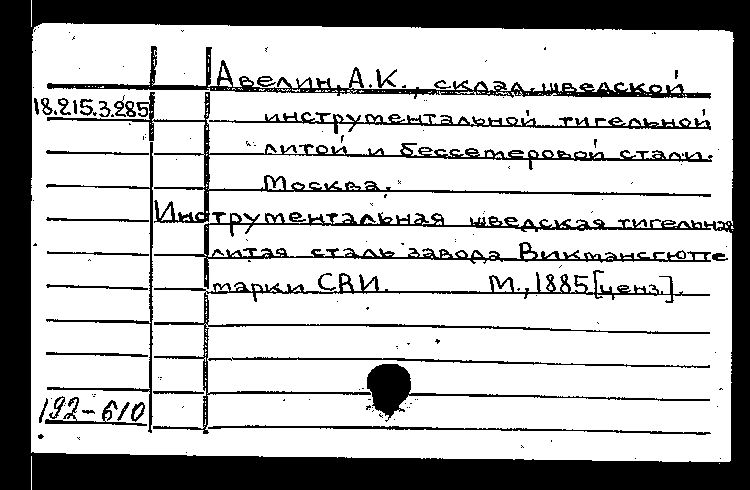 Авелин, А.К., склад шведской
18.215.3.285
инструментальной тигельной
литой и бессемеровой стали.
Москва.
Инструментальная шведская тигельная
литая сталь завода Викмансгютте
марки СВИ. М., 1885 [ценз.].
192-610